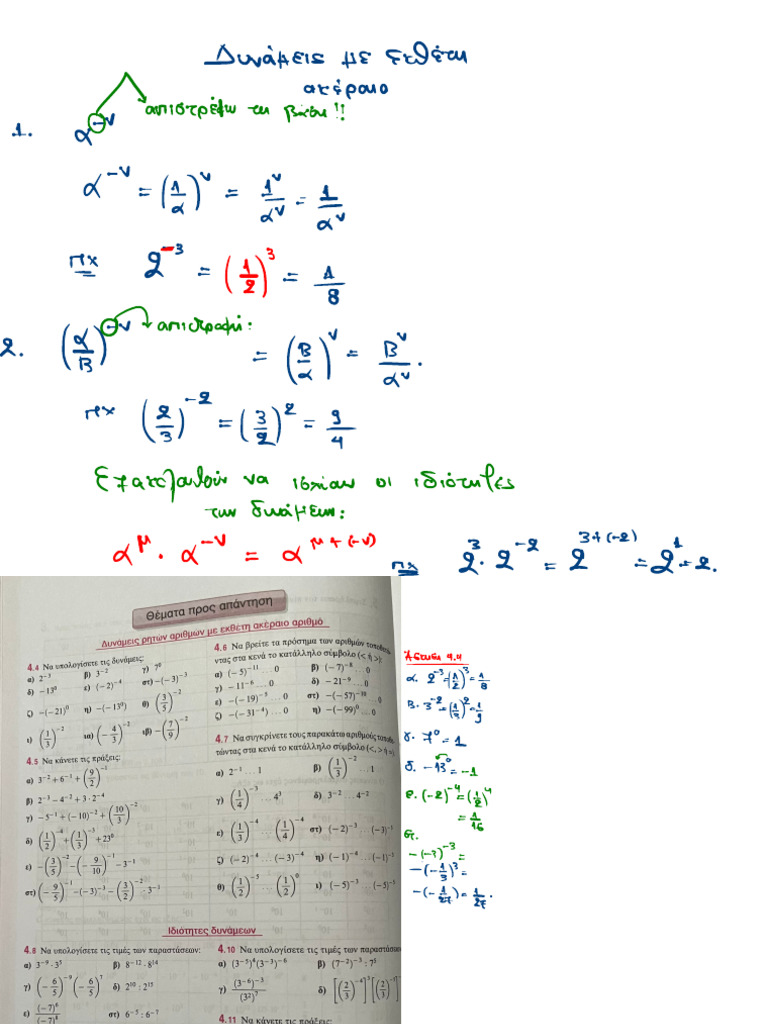 Δυνάμεις με εκθέτη
ακέραιο
αντιστρέφω τη βάση!!
1. α^{-ν}
α^{-ν} = (1/α)^ν = 1^ν/α^ν = 1/α^ν
πχ 2^{-3} = (1/2)^3 = 1/8
2. (α/β)^{-ν} αντιστροφή: = (β/α)^ν = β^ν/α^ν.
πχ (2/3)^{-2} = (3/2)^2 = 9/4
Εξακολουθούν να ισχύουν οι ιδιότητες
των δυνάμεων:
α^μ · α^{-ν} = α^{μ+(-ν)} πχ 2^3 · 2^{-2} = 2^{3+(-2)} = 2^1 = 2.
Θέματα προς απάντηση
Δυνάμεις ρητών αριθμών με εκθέτη ακέραιο αριθμό
4.4 Να υπολογίσετε τις δυνάμεις:
α) 2^{-3} β) 3^{-2} γ) 7^0
δ) -13^0 ε) (-2)^{-4} στ) -(-3)^{-3}
ζ) -(-21)^0 η) -(-13^0) θ) (3/5)^{-2}
ι) (1/3)^{-2} ια) (-4/3)^{-2} ιβ) -(7/9)^{-2}
4.5 Να κάνετε τις πράξεις:
α) 3^{-2} + 6^{-1} + (9/2)^{-1}
β) 2^{-3} - 4^{-2} + 3·2^{-4}
γ) -5^{-1} + (-10)^{-2} + (10/3)^{-2}
δ) (1/2)^{-4} + (1/3)^{-3} + 23^0
ε) -(3/5)^{-2} - (-9/10)^{-1} - 3^{-1}
στ) (-9/5)^{-1} - (-3)^{-3} - (3/2)^{-2} · 3^{-1}
4.6 Να βρείτε τα πρόσημα των αριθμών τοποθε-
ντας στα κενά το κατάλληλο σύμβολο (< ή >):
α) (-5)^{-11} ... 0 β) (-7)^{-8} ... 0
γ) -11^{-6} ... 0 δ) -21^{-9} ... 0
ε) -(-19)^{-5} ... 0 στ) -(-57)^{-38} ... 0
ζ) -(-31^{-4}) ... 0 η) -(-99)^0 ... 0
4.7 Να συγκρίνετε τους παρακάτω αριθμούς τοποθε-
τώντας στα κενά το κατάλληλο σύμβολο (<, > ή =):
α) 2^{-1} ... 1 β) (1/3)^{-2} ... 1
γ) (1/4)^{-3} ... 4^3 δ) 3^{-2} ... 4^{-2}
ε) (1/3)^{-4} ... (1/4)^{-4} στ) (-2)^{-3} ... (-3)^{-3}
ζ) (-2)^{-4} ... (-3)^{-4} η) (-1)^{-4} ... (-1)^{-5}
θ) (1/2)^{-5} ... (1/2)^0 ι) (-5)^{-3} ... (-5)^{-5}
Ιδιότητες δυνάμεων
4.8 Να υπολογίσετε τις τιμές των παραστάσεων:
α) 3^{-9}·3^5 β) 8^{-12}·8^{14}
γ) (-6/5)^{-9} (-6/5)^7 δ) 2^{10} : 2^{15}
ε) (-7)^6/(-7)^8 στ) 6^{-5} : 6^{-7}
4.10 Να υπολογίσετε τις τιμές των παραστάσεων
α) (3^{-5})^4(3^{-3})^{-6} β) (7^{-2})^{-3} : 7^5
γ) (3^{-6})^{-3}/(3^2)^7 δ) [(2/3)^{-4}]^3 [(2/3)
4.11 Να κάνετε τις πράξεις:
Άσκηση 4.4
α. 2^{-3} = (1/2)^3 = 1/8
β. 3^{-2} = (1/3)^2 = 1/9
γ. 7^0 = 1
δ. -13^0 = -1
ε. (-2)^{-4} = (1/2)^4
= 1/16
στ.
-(-3)^{-3} =
-(-1/3)^3 =
-(-1/27) = 1/27.